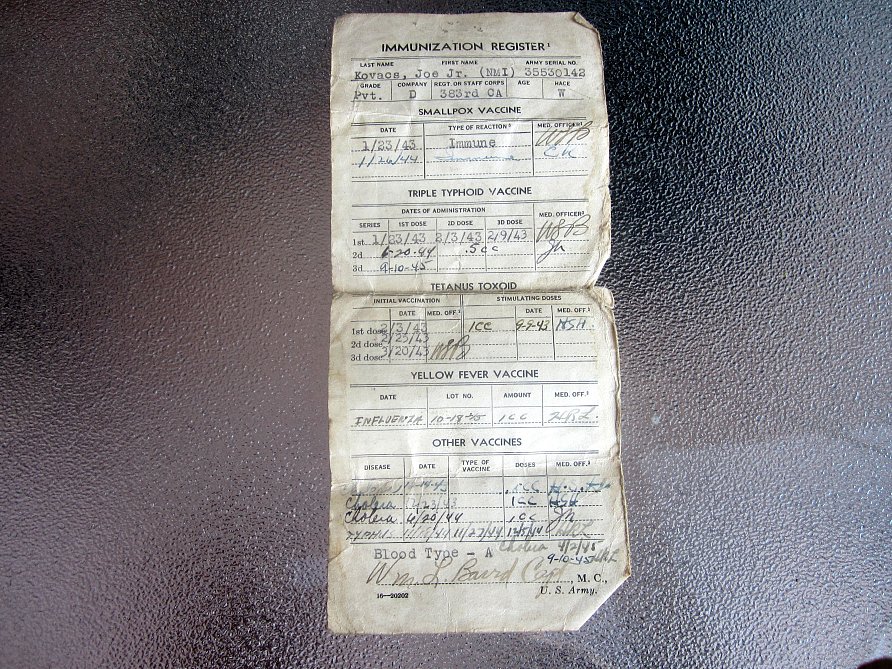 IMMUNIZATION REGISTER¹
LAST NAME FIRST NAME ARMY SERIAL NO.
Kovacs, Joe Jr. (NMI) 35530142
GRADE COMPANY REGT. OR STAFF CORPS AGE RACE
Pvt. D 383rd CA W
SMALLPOX VACCINE
DATE TYPE OF REACTION² MED. OFFICER³
1/23/43 Immune WLB
1/26/44 Immune
TRIPLE TYPHOID VACCINE
DATES OF ADMINISTRATION
SERIES 1ST DOSE 2D DOSE 3D DOSE MED. OFFICER³
1st 1/23/43 2/3/43 2/9/43 WLB
2d 6-20-44 .5 cc
3d 9-10-45
TETANUS TOXOID
INITIAL VACCINATION STIMULATING DOSES
DATE MED. OFF.³ DATE MED. OFF.³
1st dose 2/3/43 1CC 9-9-43 HSH.
2d dose 2/25/43
3d dose 3/20/43 WLB
YELLOW FEVER VACCINE
DATE LOT NO. AMOUNT MED. OFF.³
INFLUENZA 10-18-45 1CC
OTHER VACCINES
DISEASE DATE TYPE OF VACCINE DOSES MED. OFF.³
CC
Cholera 1CC HSH
Cholera 6/20/44 1CC
11/27/44
Blood Type - A Cholera 4/2/45
9-10-45
Wm. L. Baird Capt., M. C.,
16—20202 U. S. Army.